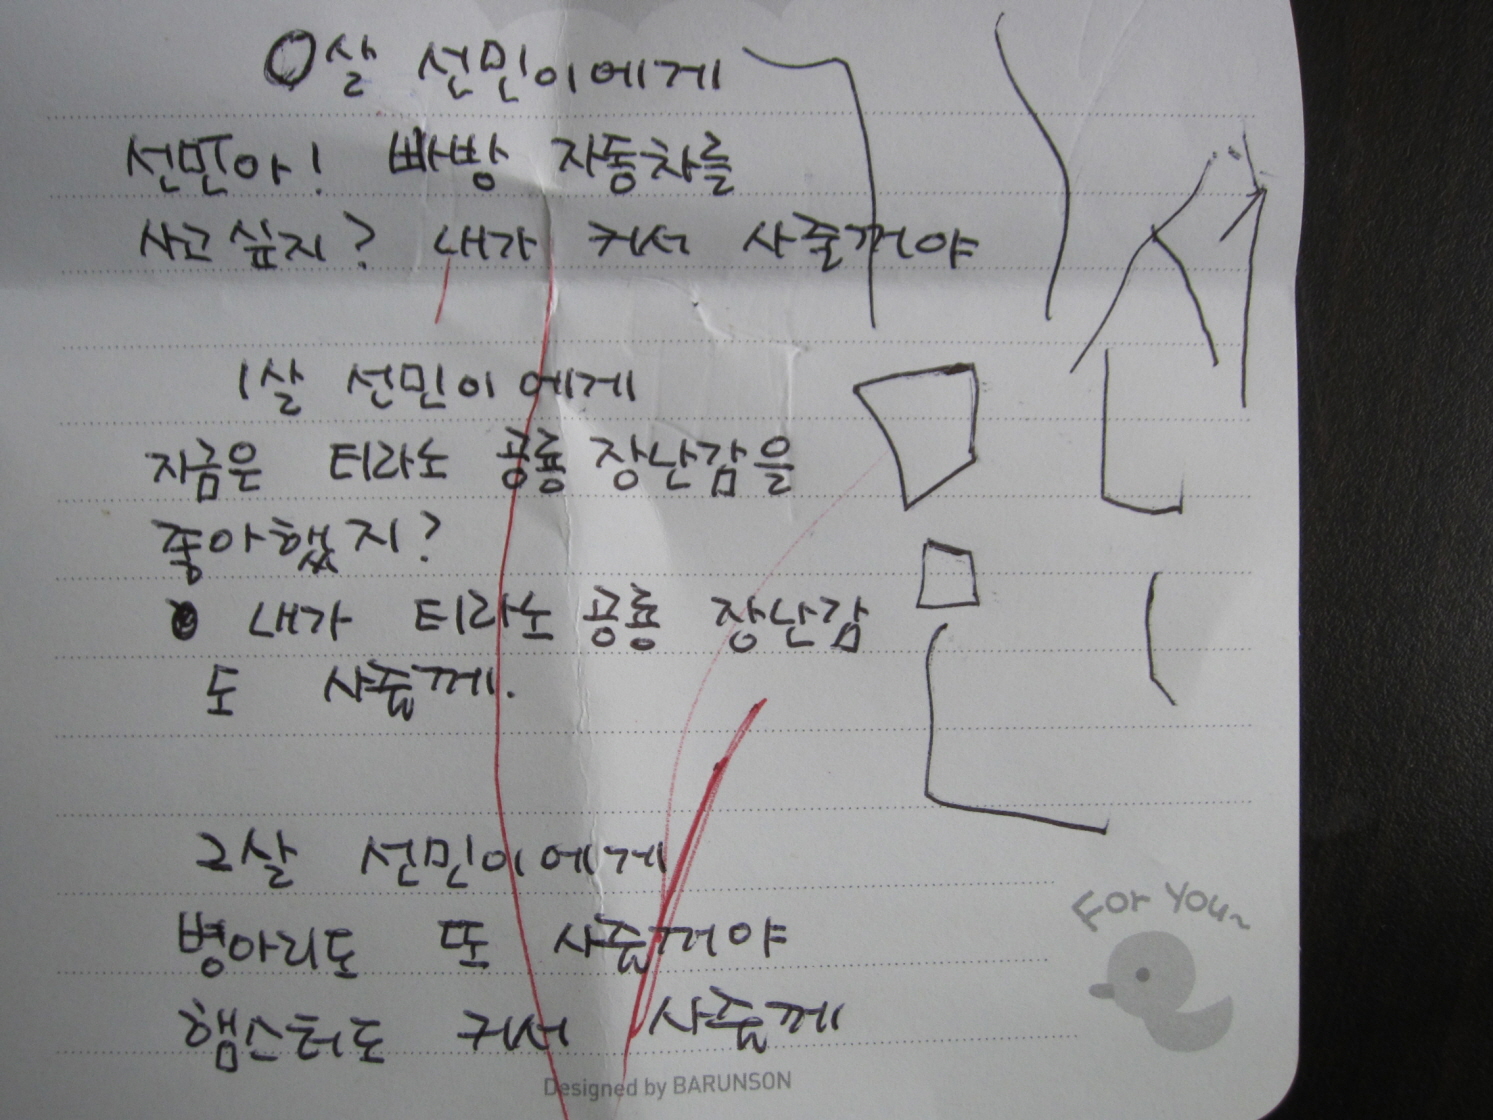 0살 선민이에게
선민아! 빠방 자동차를
사고싶지? 내가 커서 사줄꺼야
1살 선민이에게
지금은 티라노 공룡 장난감을
좋아했지?
내가 티라노 공룡 장난감
도 사줄께.
2살 선민이에게
병아리도 또 사줄꺼야
햄스터도 커서 사줄께
For You~
Designed by BARUNSON